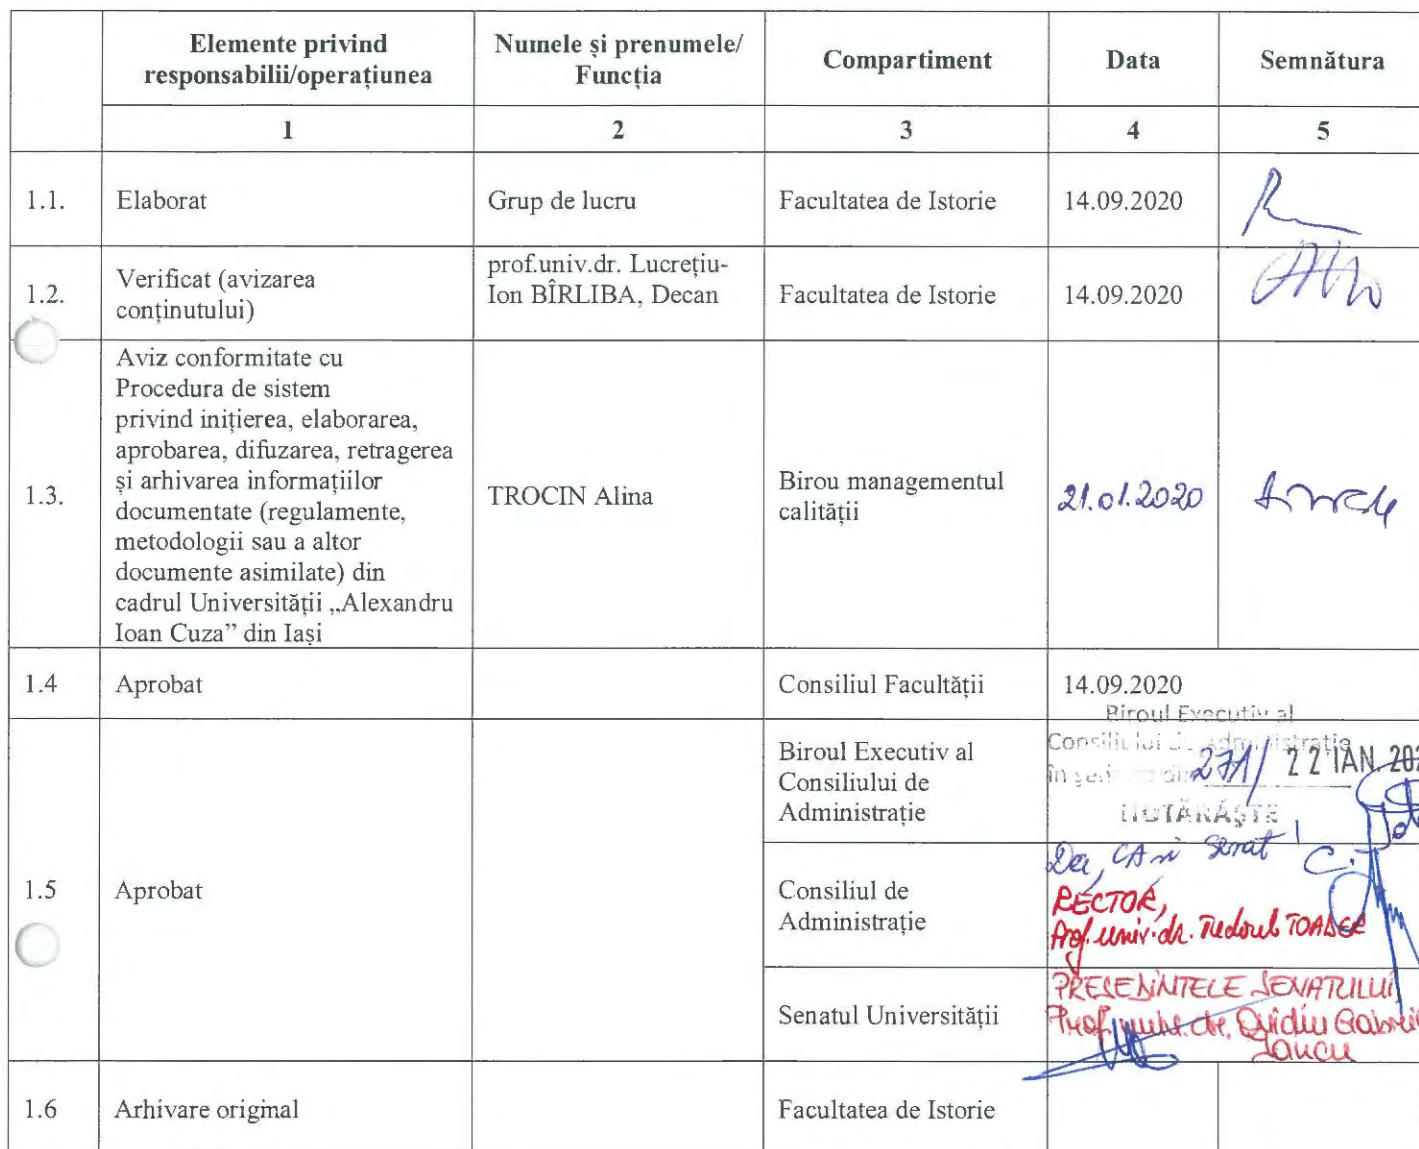 Elemente privind
responsabilii/operațiunea
Numele și prenumele/
Funcția
Compartiment
Data
Semnătura
1
2
3
4
5
1.1.
Elaborat
Grup de lucru
Facultatea de Istorie
14.09.2020
1.2.
Verificat (avizarea
conținutului)
prof.univ.dr. Lucrețiu-
Ion BÎRLIBA, Decan
Facultatea de Istorie
14.09.2020
1.3.
Aviz conformitate cu
Procedura de sistem
privind inițierea, elaborarea,
aprobarea, difuzarea, retragerea
și arhivarea informațiilor
documentate (regulamente,
metodologii sau a altor
documente asimilate) din
cadrul Universității „Alexandru
Ioan Cuza” din Iași
TROCIN Alina
Birou managementul
calității
21.01.2020
1.4
Aprobat
Consiliul Facultății
14.09.2020
1.5
Aprobat
Biroul Executiv al
Consiliului de
Administrație
Biroul Executiv al
Consiliului de Administrație
în 271/ 22 IAN. 202
HOTĂRĂȘTE
Da, CA și Senat
Consiliul de
Administrație
RECTOR,
Prof. univ. dr. Tudorel TOADER
Senatul Universității
PREȘEDINTELE SENATULUI
Prof. univ. dr. Ovidiu Gabriel
Iancu
1.6
Arhivare original
Facultatea de Istorie